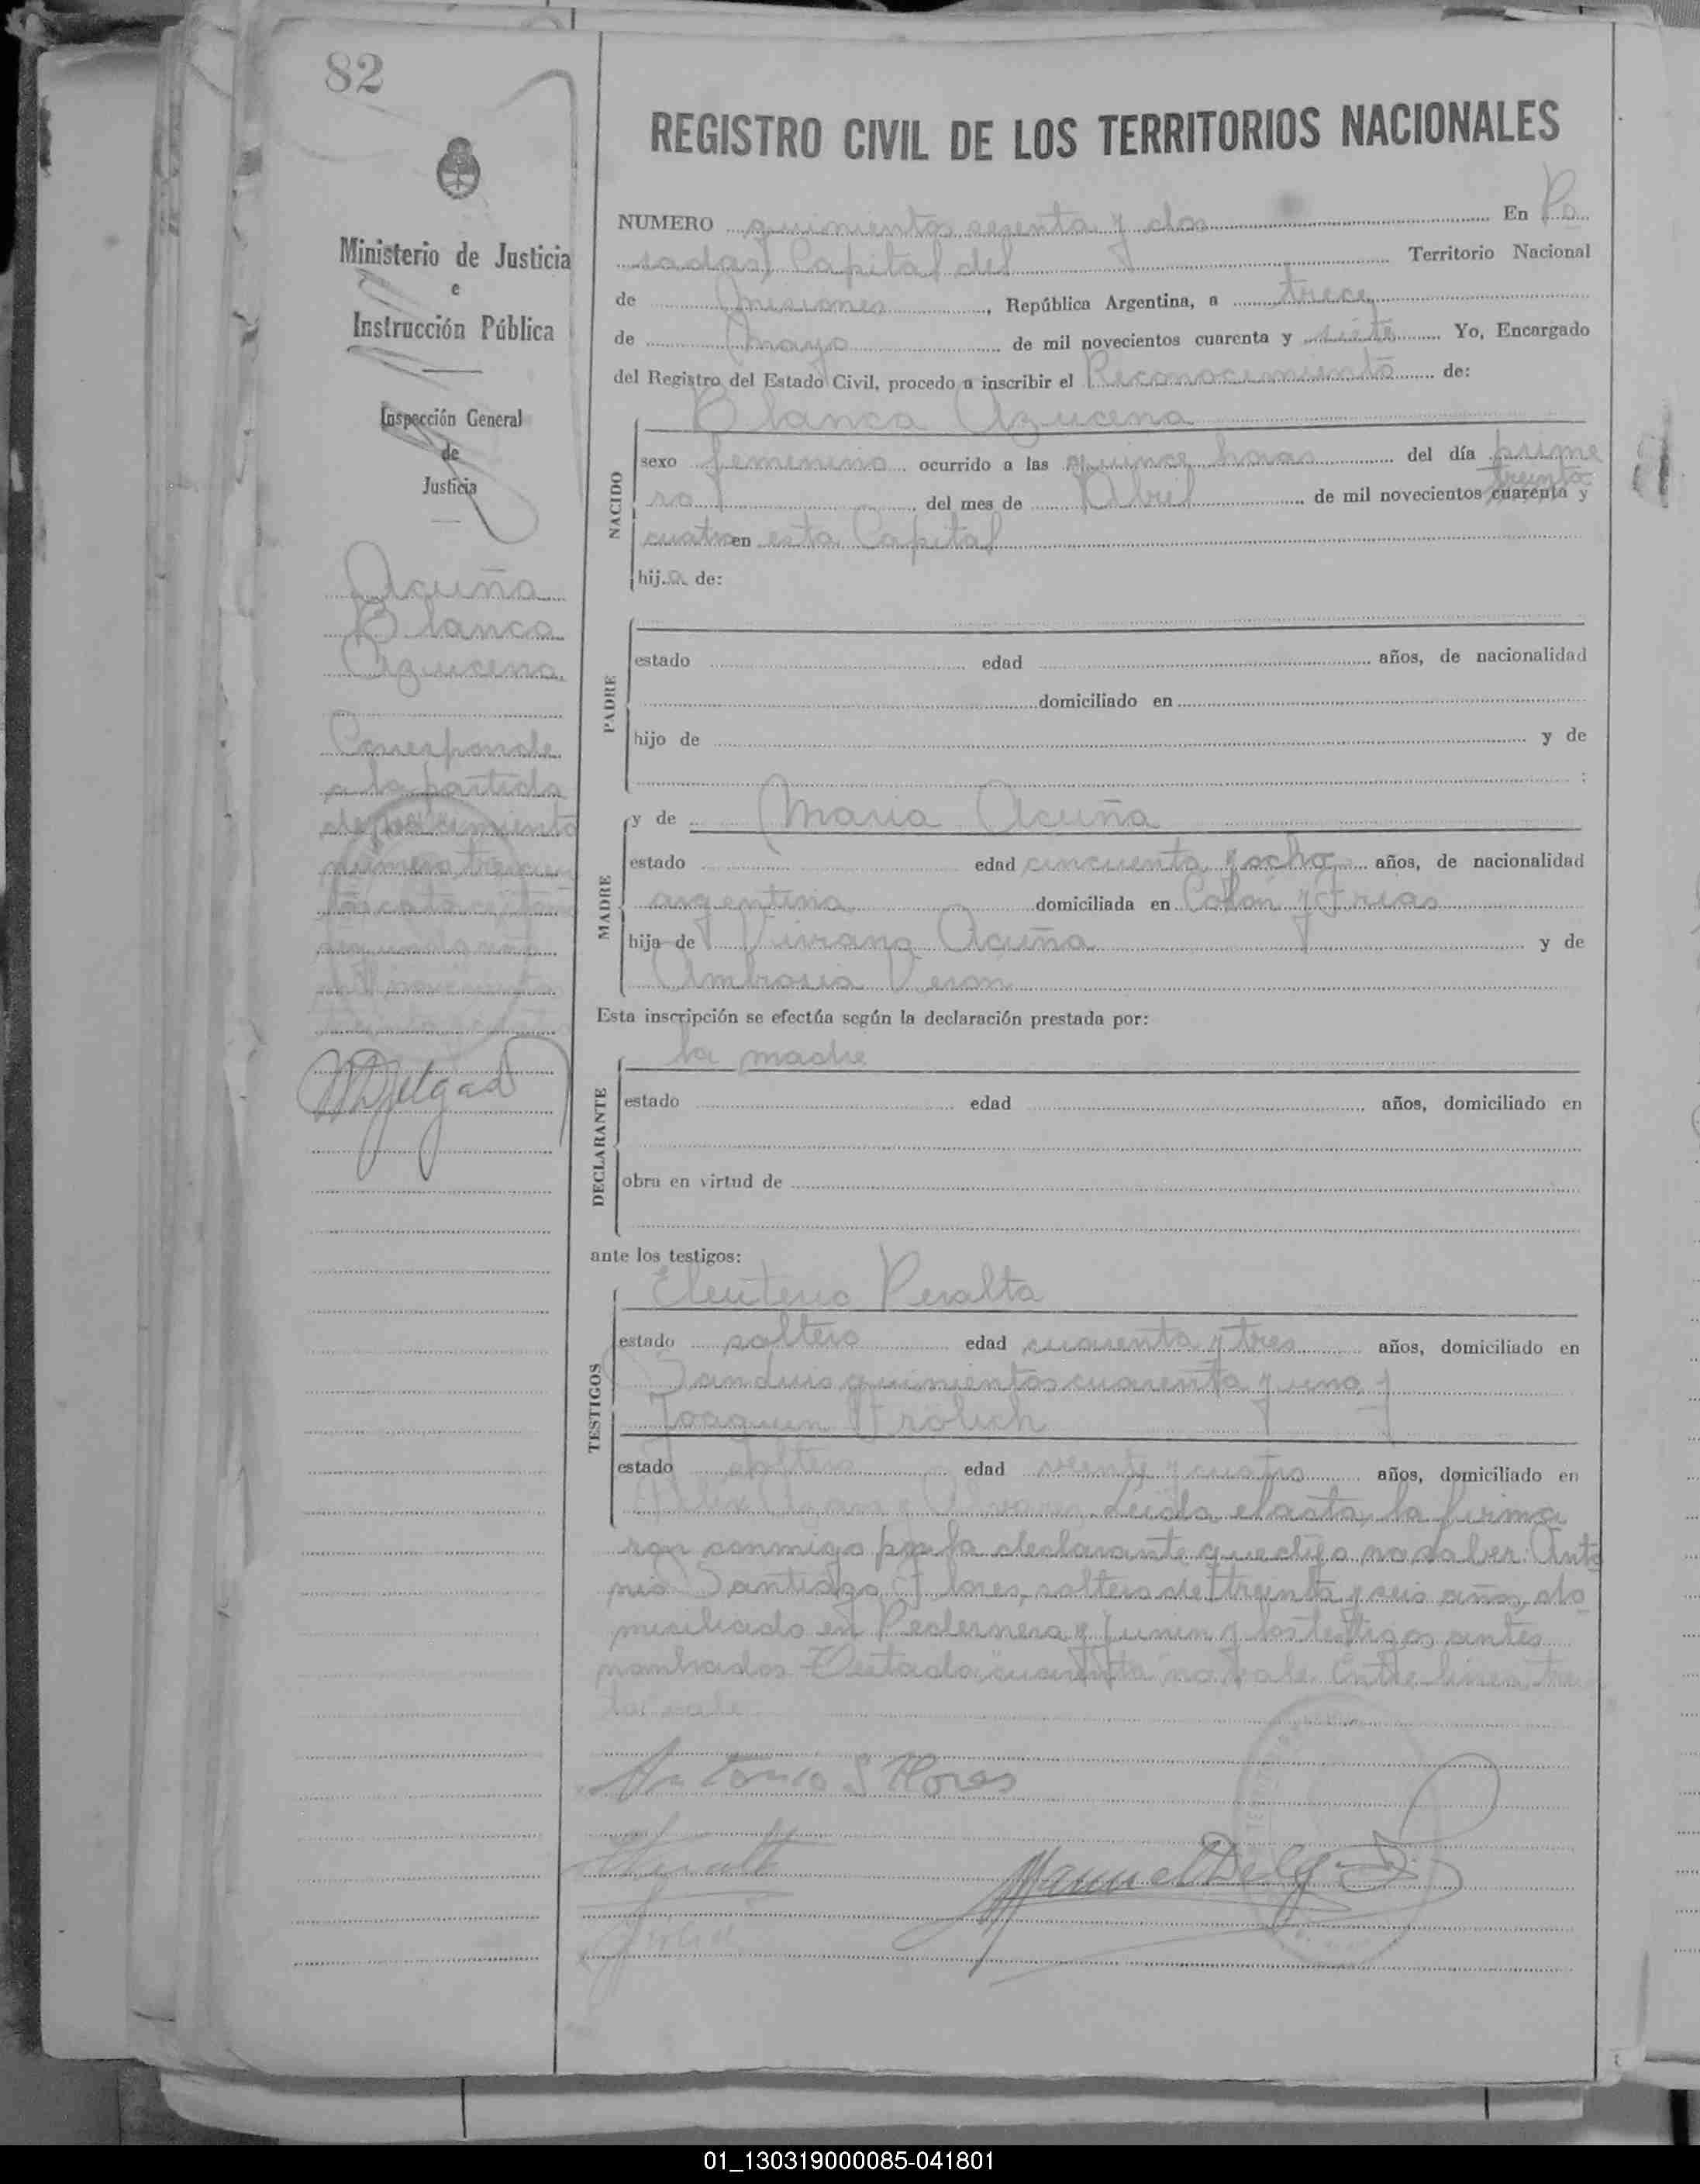 82
Ministerio de Justicia
e
Instrucción Pública
Inspección General
de
Justicia
Acuña
Blanca
Azucena
Corresponde
a la partida
de nacimiento
número trescien
tos catorce, tomo
segundo, año
mil novecientos
MDelgado
REGISTRO CIVIL DE LOS TERRITORIOS NACIONALES
NUMERO quinientos sesenta y dos En Po
sadas Capital del Territorio Nacional
de Misiones, República Argentina, a trece
de Mayo de mil novecientos cuarenta y siete Yo, Encargado
del Registro del Estado Civil, procedo a inscribir el Reconocimiento de:
Blanca Azucena
NACIDO
sexo femenino ocurrido a las quince horas del día prime
treinta
ro del mes de Abril de mil novecientos cuarenta y
cuatro en esta Capital
hija de:
PADRE
estado edad años, de nacionalidad
domiciliado en
hijo de y de
:
MADRE
y de Maria Acuña
estado edad cincuenta y ocho años, de nacionalidad
argentina domiciliada en Colón y Frias
hija de Viviano Acuña y de
Ambrosia Veron
Esta inscripción se efectúa según la declaración prestada por:
DECLARANTE
la madre
estado edad años, domiciliado en
obra en virtud de
ante los testigos:
TESTIGOS
Eleuterio Peralta
estado soltero edad cuarenta y tres años, domiciliado en
San Luis quinientos cuarenta y uno y
Joaquin Frölich
estado soltero edad veinte y cuatro años, domiciliado en
Leida el acta, la firma
ron conmigo por la declarante que dijo no saber: Anto
nio Santiago Flores, soltero de treinta y seis años, do
miciliado en Pedernera y Junin y los testigos antes
nombrados - Testado: cuarenta no vale. Entre linea: tre
ta: vale
Antonio S Flores
Peralta
Manuel Delgado
01_130319000085-041801